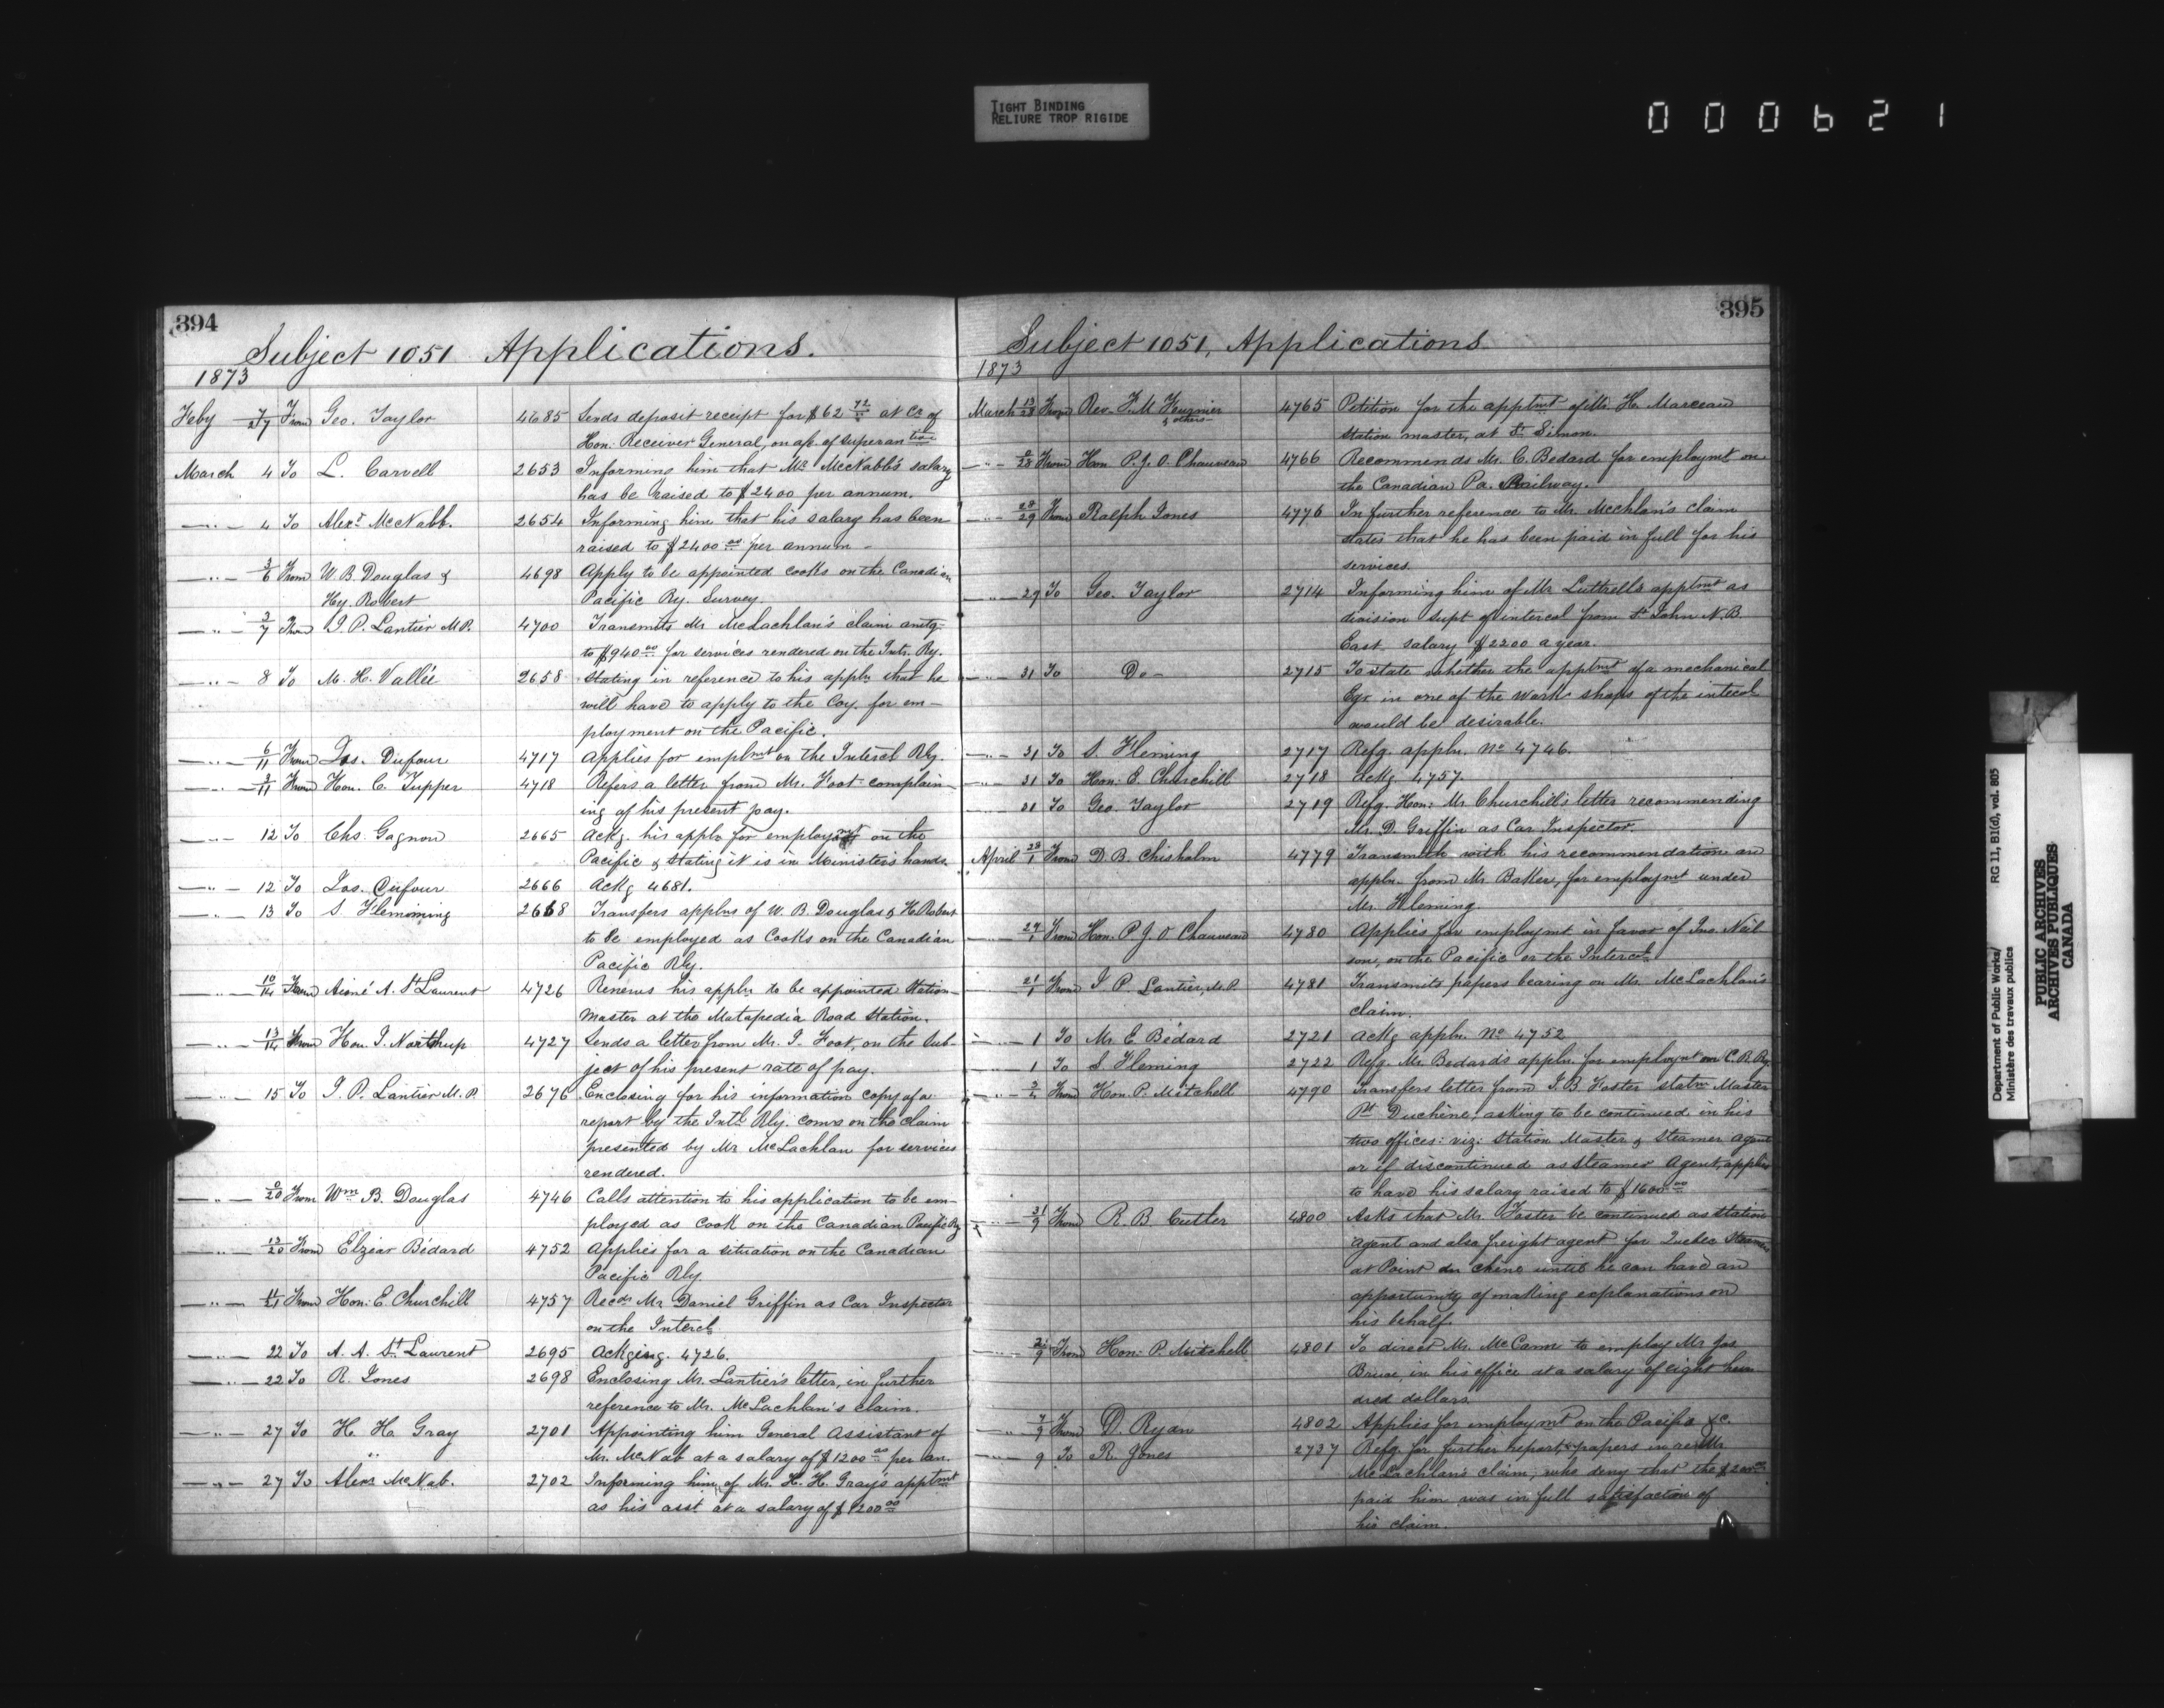 TIGHT BINDING
RELIURE TROP RIGIDE
000621
394
Subject 1051 Applications.
1873
Feby 7/27 From Geo. Taylor 4685 Sends deposit receipt for $62 72/ at Cr of
Hon: Receiver General, on a/c. of superantion
March 4 To L. Carvell 2653 Informing him that Mr McNabb's salary
has be raised to $2400 per annum.
—"— 4 To Alexr McNabb. 2654 Informing him that his salary has been
raised to $2400.00 per annum —
—"— 3/6 From W. B. Douglas & 4698 Apply to be appointed cooks on the Canadian
Hy. Robert Pacific Ry. Survey.
—"— 3/7 From J. P. Lantier M.P. 4700 Transmits Mr McLachlan's claim amtg
to $940.00 for services rendered on the Intr. Ry.
—"— 8 To M. H. Vallée 2658 Stating in reference to his appln that he
will have to apply to the Coy. for em-
ployment on the Pacific.
—"— 6/11 From Jos. Dufour 4717 Applies for emplmt on the Intercl Rly.
—"— 3/11 From Hon. C. Tupper 4718 Refers a letter from Mr. Foot complain-
ing of his present pay.
—"— 12 To Chs. Gagnon 2665 Ackg. his appln for employmt on the
Pacific & stating it is in Minister's hands.
—"— 12 To Jos. Dufour 2666 Ackg 4681.
—"— 13 To S. Flemming 2668 Transfers applns of W. B. Douglas & H. Robert
to be employed as Cooks on the Canadian
Pacific Rly.
—"— 10/14 From Aimé A. St Laurent 4726 Renews his appln to be appointed Station-
master at the Matapedia Road Station.
—"— 13/14 From Hon. J. Northup 4727 Sends a letter from Mr. J. Foot, on the sub-
ject of his present rate of pay.
—"— 15 To J. P. Lantier M.P. 2676 Enclosing for his information copy of a
report by the Intl Rly. Comrs on the claim
presented by Mr McLachlan for services
rendered.
—"— /20 From Wm B. Douglas 4746 Calls attention to his application to be em-
ployed as Cook on the Canadian Pacific Ry
—"— 13/20 From Elzéar Bédard 4752 Applies for a situation on the Canadian
Pacific Rly.
—"— 11/21 From Hon: E. Churchill 4757 Recds Mr Daniel Griffin as Car Inspector
on the Intercl.
—"— 22 To A. A. St Laurent 2695 Ackging. 4726.
—"— 22 To R. Jones 2698 Enclosing Mr. Lantier's letter, in further
reference to Mr. McLachlan's claim.
—"— 27 To H. H. Gray 2701 Appointing him General Assistant of
" Mr. McNab at a salary of $1200.00 per an.
—"— 27 To Alexr McNab. 2702 Informing him of Mr. H. H. Gray's apptmt
as his asst. at a salary of $1200.00
395
Subject 1051, Applications
1873
March 13/28 From Rev. F. M Fournier 4765 Petition for the apptmt of Mr H. Marceau
& others Station master, at St Simon.
—"— /28 From Hon P. J. O. Chauveau 4766 Recommends Mr. C. Bedard for employmt on
the Canadian Pa. Railway.
—"— 28/29 From Ralph Jones 4776 In further reference to Mr. Mcchlan's claim
states that he has been paid in full for his
services.
—"— 29 To Geo. Taylor 2714 Informing him of Mr Luttrell's apptmt as
division Supt of intercol from St John N.B.
East, salary $2200 a year.
—"— 31 To Do — 2715 To state whether the apptmt of a mechanical
Egr in one of the work shops of the intercol
would be desirable.
—"— 31 To S. Fleming 2717 Refg. appln. No 4746.
—"— 31 To Hon: E. Churchill 2718 Ackg. 4757.
31 To Geo. Taylor 2719 Refg. Hon: Mr Churchill's letter recommending
Mr. D. Griffin as Car Inspector.
April 28/1 From D. B. Chisholm 4779 Transmits with his recommendation an
appln. from Mr Baker, for employmt under
Mr. Fleming
—"— 27/1 From Hon. P. J. O Chauveau 4780 Applies for employmt in favor of Jno. Neil
son, on the Pacific or the Intercol.
—"— 21/1 From J P. Lantier, M.P. 4781 Transmits papers bearing on Mr. McLachlan's
claim.
—"— 1 To Mr E Bédard 2721 Ackg appln. No 4752
1 To S. Fleming 2722 Refg. Mr. Bedard's appln. for employmt on C. P. Ry.
—"— /2 From Hon. P. Mitchell 4790 Transfers letter from J. B. Foster statn Master
Pt Duchêne, asking to be continued in his
two offices: viz: Station Master & Steamer agent
or if discontinued as Steamer Agent, applies
to have his salary raised to $1600.00
—"— 31/9 From R. B Cutler 4800 Asks that Mr. Foster be continued as station
agent and also freight agent for Quebec Steamers
at Point du chêne until he can have an
opportunity of making explanations on
his behalf.
—"— 2/9 From Hon: P. Mitchell 4801 To direct Mr. McCann to employ Mr Jas
Bruce, in his office at a salary of eight hun
dred dollars.
—"— 7/9 From D. Ryan 4802 Applies for employmt on the Pacific &c.
—"— 9 To R. Jones 2737 Refg. for further report papers in re Mr
McLachlan's claim, who deny that the
paid him was in full satisfaction of
his claim.
Department of Public Works/ RG 11, B1(d), vol. 805
Ministère des travaux publics
PUBLIC ARCHIVES
ARCHIVES PUBLIQUES
CANADA